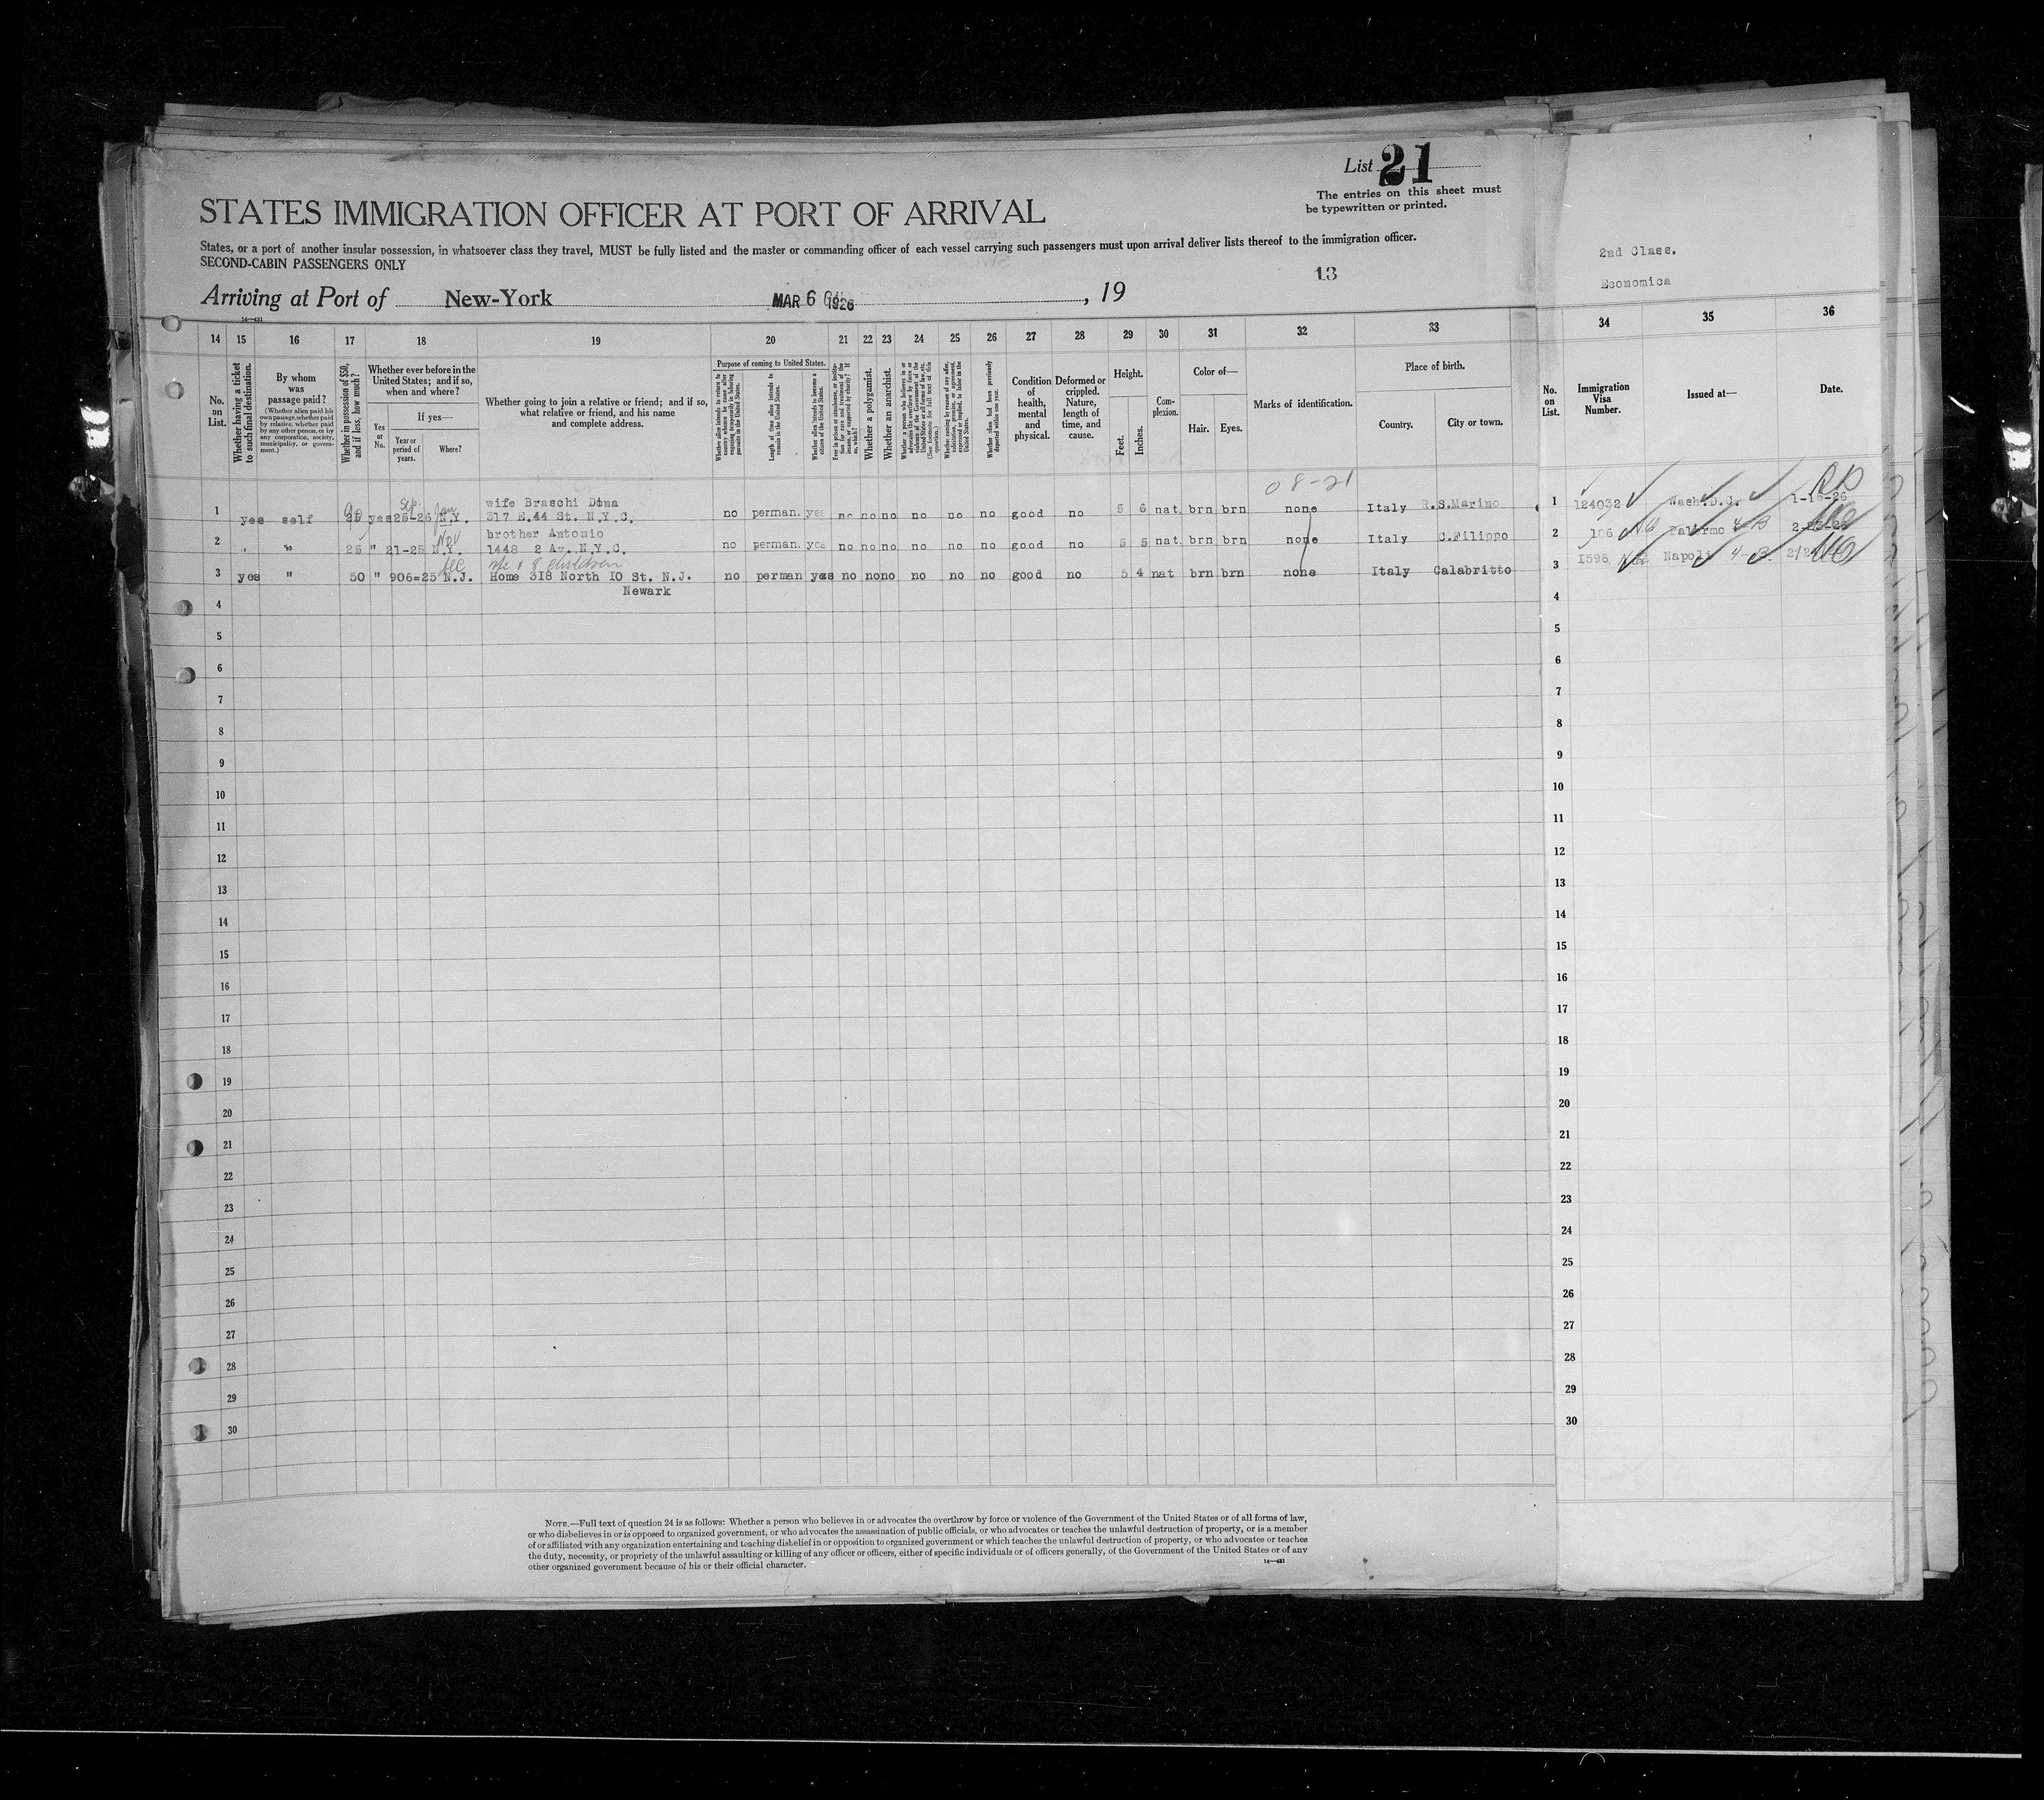 List 21
The entries on this sheet must
be typewritten or printed.
STATES IMMIGRATION OFFICER AT PORT OF ARRIVAL
States, or a port of another insular possession, in whatsoever class they travel, MUST be fully listed and the master or commanding officer of each vessel carrying such passengers must upon arrival deliver lists thereof to the immigration officer.
SECOND-CABIN PASSENGERS ONLY
13
2nd Class.
Economica
Arriving at Port of New-York MAR 6 1926, 19
14—431
14 15 16 17 18 19 20 21 22 23 24 25 26 27 28 29 30 31 32 33 34 35 36
No. on List.
Whether having a ticket to such final destination.
By whom was passage paid?
(Whether alien paid his own passage, whether paid by relative, whether paid by any other person, or by any corporation, society, municipality, or government.)
Whether in possession of $50, and if less, how much?
Whether ever before in the United States; and if so, when and where?
Yes or No.
If yes—
Year or period of years.
Where?
Whether going to join a relative or friend; and if so, what relative or friend, and his name and complete address.
Purpose of coming to United States.
Whether alien intends to return to country whence he came after engaging temporarily in laboring pursuits in the United States.
Length of time alien intends to remain in the United States.
Whether alien intends to become a citizen of the United States.
Whether a polygamist.
Whether an anarchist.
Whether alien had been previously deported within one year.
Condition of health, mental and physical.
Deformed or crippled. Nature, length of time, and cause.
Height.
Feet.
Inches.
Complexion.
Color of—
Hair.
Eyes.
Marks of identification.
Place of birth.
Country.
City or town.
No. on List.
Immigration Visa Number.
Issued at—
Date.
08-21
Sep. Jan
1 yes self 25 yes 25-26 N.Y. wife Braschi Dома
317 E.44 St. N.Y.C. no perman. yes no no no no no no good no 5 6 nat. brn brn none Italy R.S.Marino 1 124032 Wash.D.C. 1-16-26
Nov
2 " " 25 " 21-25 N.Y. brother Antonio
1448 2 Av. N.Y.C. no perman. yes no no no no no no good no 5 5 nat. brn brn none Italy C.Filippo 2 106 Palermo 4-B
Dec wife & 8 children
3 yes " 50 " 906=25 N.J. Home 318 North 10 St. N.J. no perman yes no no no no no no good no 5 4 nat brn brn none Italy Calabritto 3 1596 Napoli 4-B
Newark
4 4
5 5
6 6
7 7
8 8
9 9
10 10
11 11
12 12
13 13
14 14
15 15
16 16
17 17
18 18
19 19
20 20
21 21
22 22
23 23
24 24
25 25
26 26
27 27
28 28
29 29
30 30
NOTE.—Full text of question 24 is as follows: Whether a person who believes in or advocates the overthrow by force or violence of the Government of the United States or of all forms of law,
or who disbelieves in or is opposed to organized government, or who advocates the assassination of public officials, or who advocates or teaches the unlawful destruction of property, or is a member
of or affiliated with any organization entertaining and teaching disbelief in or opposition to organized government or which teaches the unlawful destruction of property, or who advocates or teaches
the duty, necessity, or propriety of the unlawful assaulting or killing of any officer or officers, either of specific individuals or of officers generally, of the Government of the United States or of any
other organized government because of his or their official character.
14—431